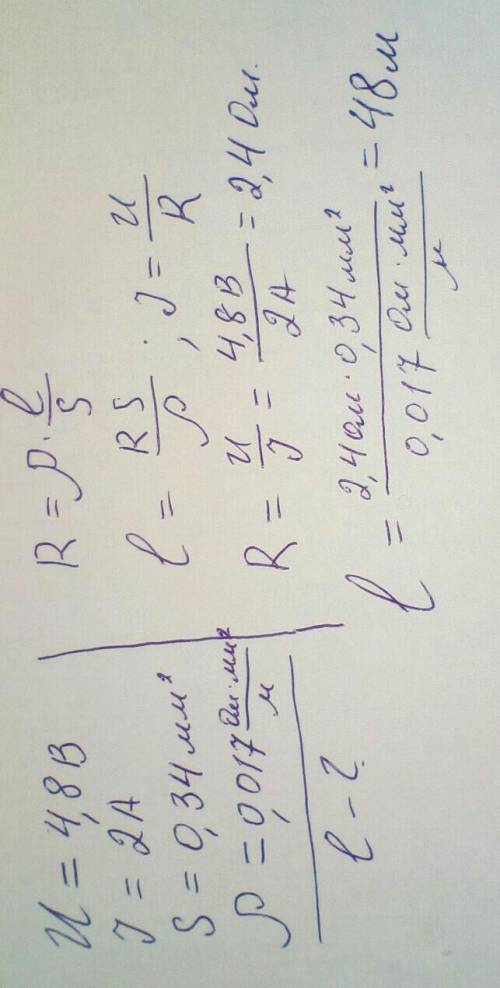 U = 4,8 В
I = 2 А
S = 0,34 мм²
ρ = 0,017 Ом·мм²/м
l - ?
R = ρ · l/S
l = RS/ρ ; I = U/R
R = U/I = 4,8 В/2 А = 2,4 Ом.
l = 2,4 Ом · 0,34 мм²/0,017 Ом·мм²/м = 48 м